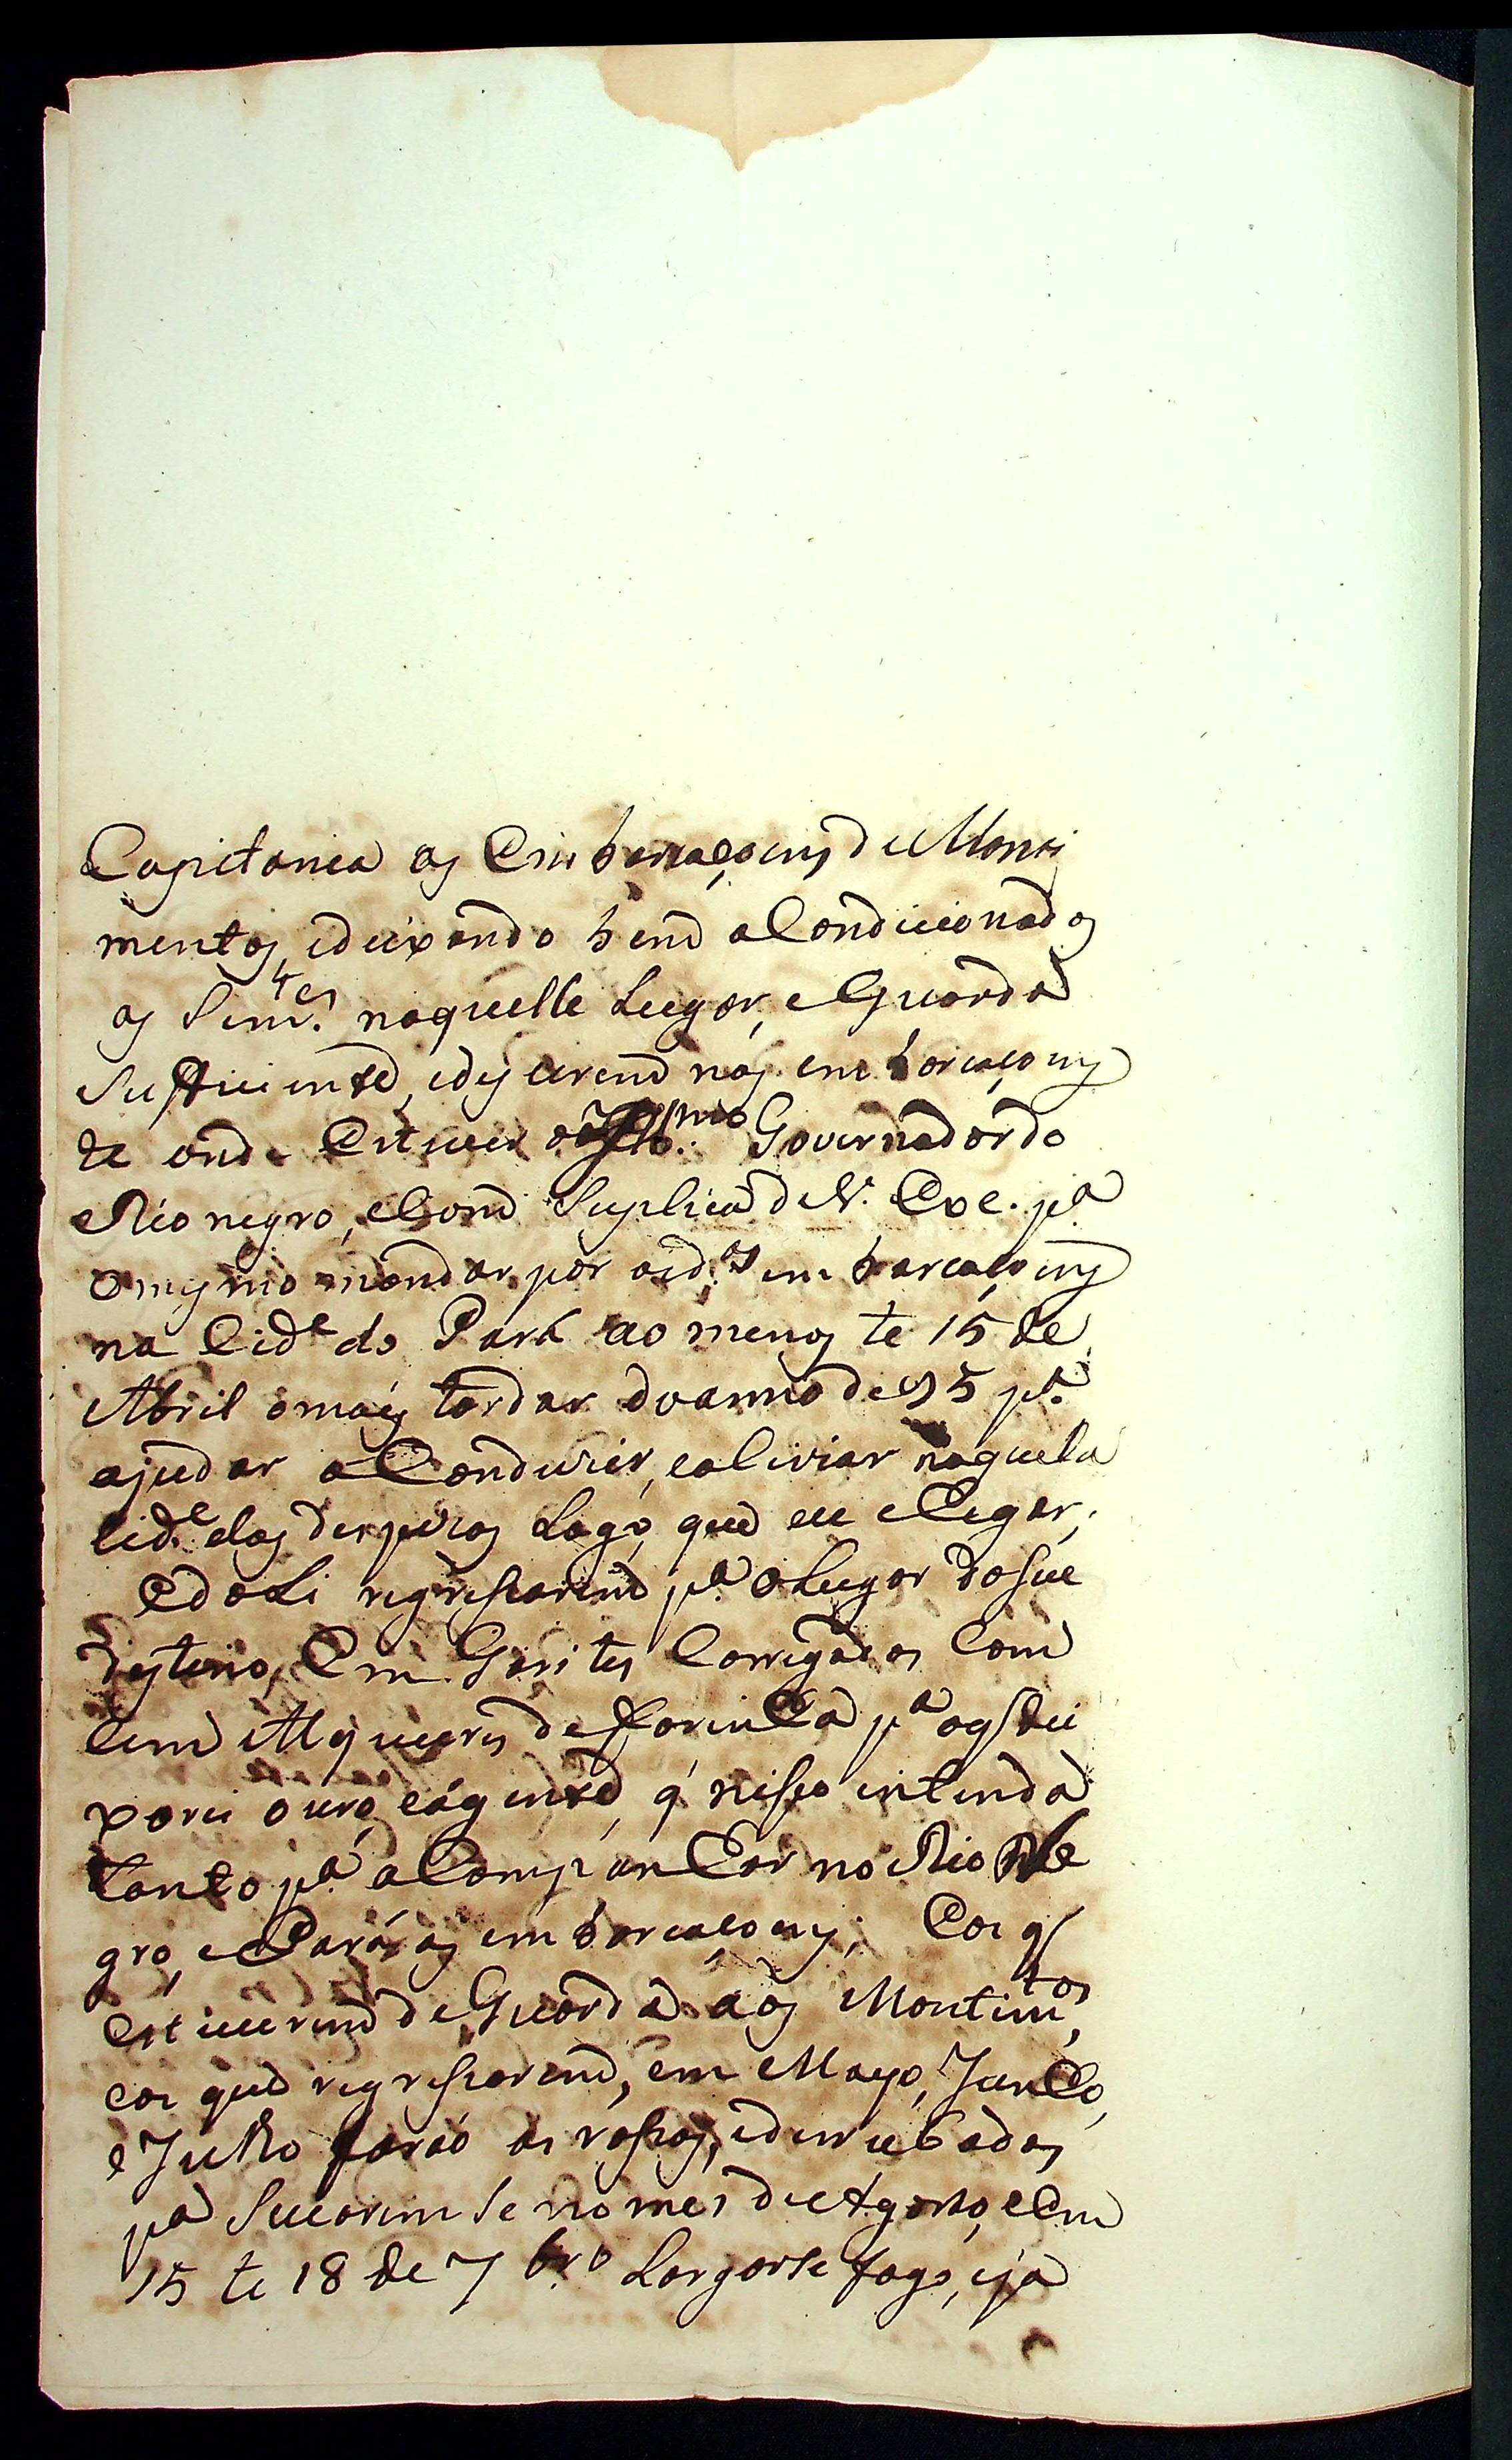 Capitania as Embarcaçoins de Manti
mentos, edeixando bem aCondicionados
as Sem.tes naquelle Lugar, eGuarda
Sufficiente, edescerem nas embarcaçoins
te onde Estiver o Ill.mo Governador do
Rio negro, eCom Suplica de V. Exc. p.a
omesmo mandar por as d.as embarcaçoins
na Cid.e do Pará ao menos te 15 de
Abril omais tardar do anno de 95 p.a
ajudar aConduzir, ealiviar naquela
Cid.e das despezas Logo que eu chegar;
Edali regressarem p.a oLugar do seu
destino, Em Garites Carregados Com
Cem Alqueires de farinha p.a os dei
xarei ouro, eágente, q̃ nisso intenda
tanto p.a aCompanhar no Rio Ne
gro, ePará as embarcaçoins; Eos q̃
Estiverem de Guarda aos Mantim.tos,
eos que regressarem, em Mayo, Junho,
e Julho faraó as rossas, ederrubadas
p.a Secarem Se no mes de Agosto, eEm
15 te 18 de 7br.o Largarse fogo, eja